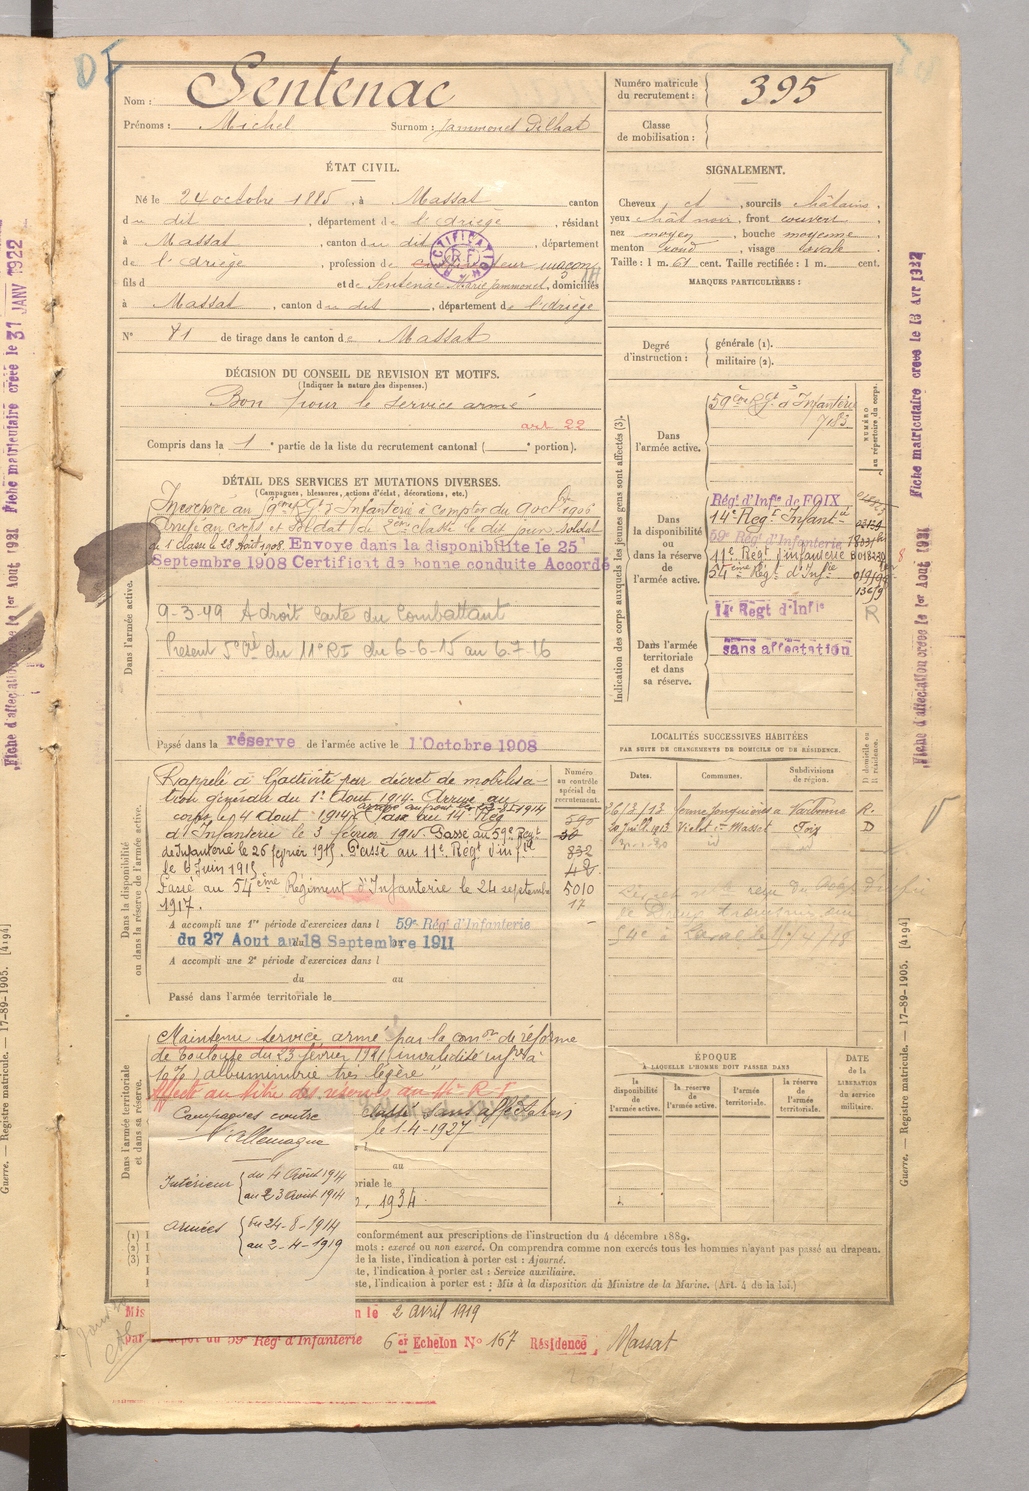 Nom : Sentenac
Prénoms : Michel Surnom : Jammonet Pilhat
Numéro matricule du recrutement : 395
Classe de mobilisation :
ÉTAT CIVIL.
Né le 24 octobre 1885, à Massat canton
du dit, département de l'Ariège, résidant
à Massat, canton du dit, département
de l'Ariège, profession de maçon
fils d et de Sentenac Marie Jammonet, domiciliés
à Massat, canton du dit, département de l'Ariège
RECTIFICATION
R.F.
N° 71 de tirage dans le canton de Massat
DÉCISION DU CONSEIL DE REVISION ET MOTIFS.
(Indiquer la nature des dispenses.)
Bon pour le service armé
art 22
Compris dans la 1e partie de la liste du recrutement cantonal ( e portion).
SIGNALEMENT.
Cheveux et, sourcils châtains,
yeux chât noir, front couvert,
nez moyen, bouche moyenne,
menton rond, visage ovale
Taille : 1 m. 61 cent. Taille rectifiée : 1 m. cent.
MARQUES PARTICULIÈRES :
Degré d'instruction :
générale (1).
militaire (2).
DÉTAIL DES SERVICES ET MUTATIONS DIVERSES.
(Campagnes, blessures, actions d'éclat, décorations, etc.)
Dans l'armée active.
Incorporé au 59eme Rgt d'Infanterie à Compter du 9 oct 1906
Arrivé au corps et Soldat de 2eme classe le dit jour. Soldat
de 1e classe le 28 Août 1908. Envoye dans la disponibilite le 25
Septembre 1908 Certificat de bonne conduite Accordé
9-3-49 A droit carte du Combattant
Présent du 11e RI du 6-6-15 au 6.7.16
Passé dans la réserve de l'armée active le 1 Octobre 1908
Indication des corps auxquels les jeunes gens sont affectés (3).
NUMÉRO au répertoire du corps.
Dans l'armée active.
59eme Rgt d'Infanterie
7183
Dans la disponibilité ou dans la réserve de l'armée active.
Régt d'Infie de FOIX
14e Regt Infant
59e Régt d'Infanterie
11e Régt d'infanterie
54eme Régt d'Infie
14e Regt d'Infie
R
Dans l'armée territoriale et dans sa réserve.
sans affectation
Dans la disponibilité ou dans la réserve de l'armée active.
Numéro au contrôle spécial du recrutement.
Rappelé à l'activité par décret de mobilisa-
tion générale du 1er Août 1914. Arrivé au
corps le 4 Août 1914. Passé au 14e Reg
d'Infanterie le 3 février 1915. Passé au 59e Regt
d'Infanterie le 26 février 1915. Passé au 11e Regt d'infie
le 6 Juin 1915
Passé au 54eme Régiment d'Infanterie le 24 septembre
1917.
590
832
5010
17
A accompli une 1re période d'exercices dans l 59e Régt d'Infanterie
du 27 Aout au 18 Septembre 1911
A accompli une 2e période d'exercices dans l
du au
Passé dans l'armée territoriale le
LOCALITÉS SUCCESSIVES HABITÉES
PAR SUITE DE CHANGEMENTS DE DOMICILE OU DE RÉSIDENCE.
Dates. Communes. Subdivisions de région. D domicile ou R résidence.
26/3/13 Narbonne R.
20 Juill 1913 Massat Foix D
Dans l'armée territoriale et dans sa réserve.
Maintenu service armé par la comon de réforme
de Toulouse du 23 février 1921 (invalidité infre à
10%) albuminurie très légère"
Affecté au titre des réserves au 14e R I
Classé Sans affectation
le 1-4-1927
au
oriale le
1934.
Campagnes contre
l'Allemagne
Intérieur { du 4 Août 1914
au 23 Août 1914
Armées { du 24-8-1914
au 2-4-1919
ÉPOQUE
À LAQUELLE L'HOMME DOIT PASSER DANS
la disponibilité de l'armée active.
la réserve de l'armée active.
l'armée territoriale.
la réserve de l'armée territoriale.
DATE de la LIBÉRATION du service militaire.
(1) conformément aux prescriptions de l'instruction du 4 décembre 1889.
(2) mots : exercé ou non exercé. On comprendra comme non exercés tous les hommes n'ayant pas passé au drapeau.
(3) de la liste, l'indication à porter est : Ajourné.
te, l'indication à porter est : Service auxiliaire.
ste, l'indication à porter est : Mis à la disposition du Ministre de la Marine. (Art. 4 de la loi.)
Mis n le 2 avril 1919
par dépôt du 59e Régt d'Infanterie 6er Echelon N° 167 Résidence, Massat
Fiche matriculaire créée le 31 JANV 1922
Fiche d'affectation créée le 1er Aout 1921
Guerre. — Registre matricule. — 17-89-1905. [4194]
Fiche matriculaire créée le 13 Avr
Fiche d'affectation créée le 1er Aout 1921
Guerre. — Registre matricule. — 17-89-1905. [4194]